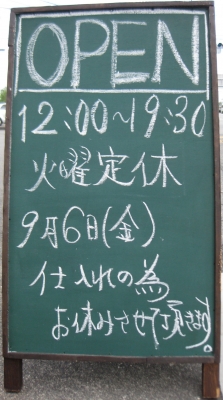 OPEN
12:00~19:30
火曜定休
9月6日(金)
仕入れの為
お休みさせて頂きます。